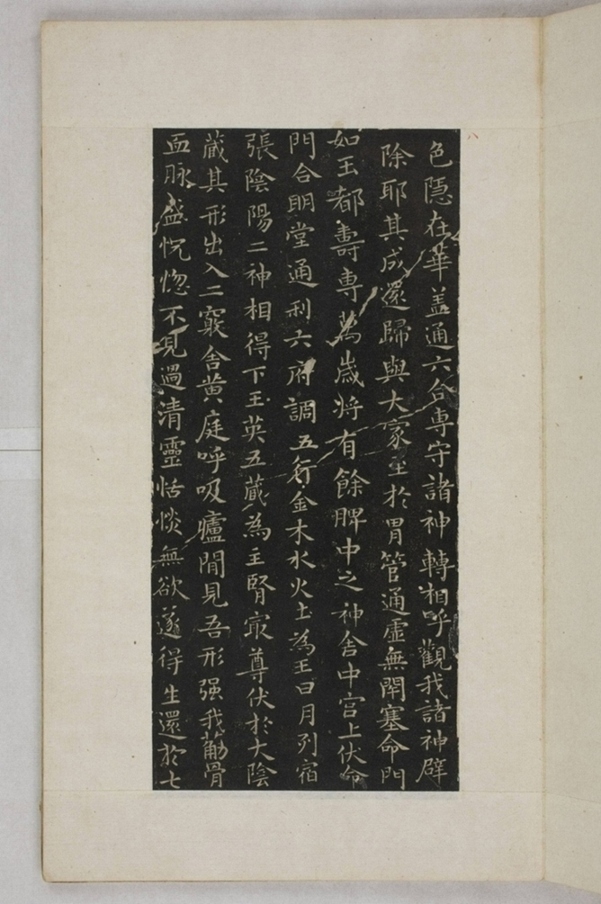 色隱在華盖通六合専守諸神轉相呼觀我諸神辟
除耶其成還歸與大家至於胃管通虛無閇塞命門
如玉都壽専萬歲將有餘脾中之神舍中宫上伏命
門合明堂通利六府調五行金木水火土為王日月列宿
張陰陽二神相得下玉英五藏為主腎㝡尊伏於大陰
藏其形出入二竅舍黄庭呼吸廬閒見吾形强我筋骨
血脉盛怳惚不見過清靈恬惔無欲遂得生還於七